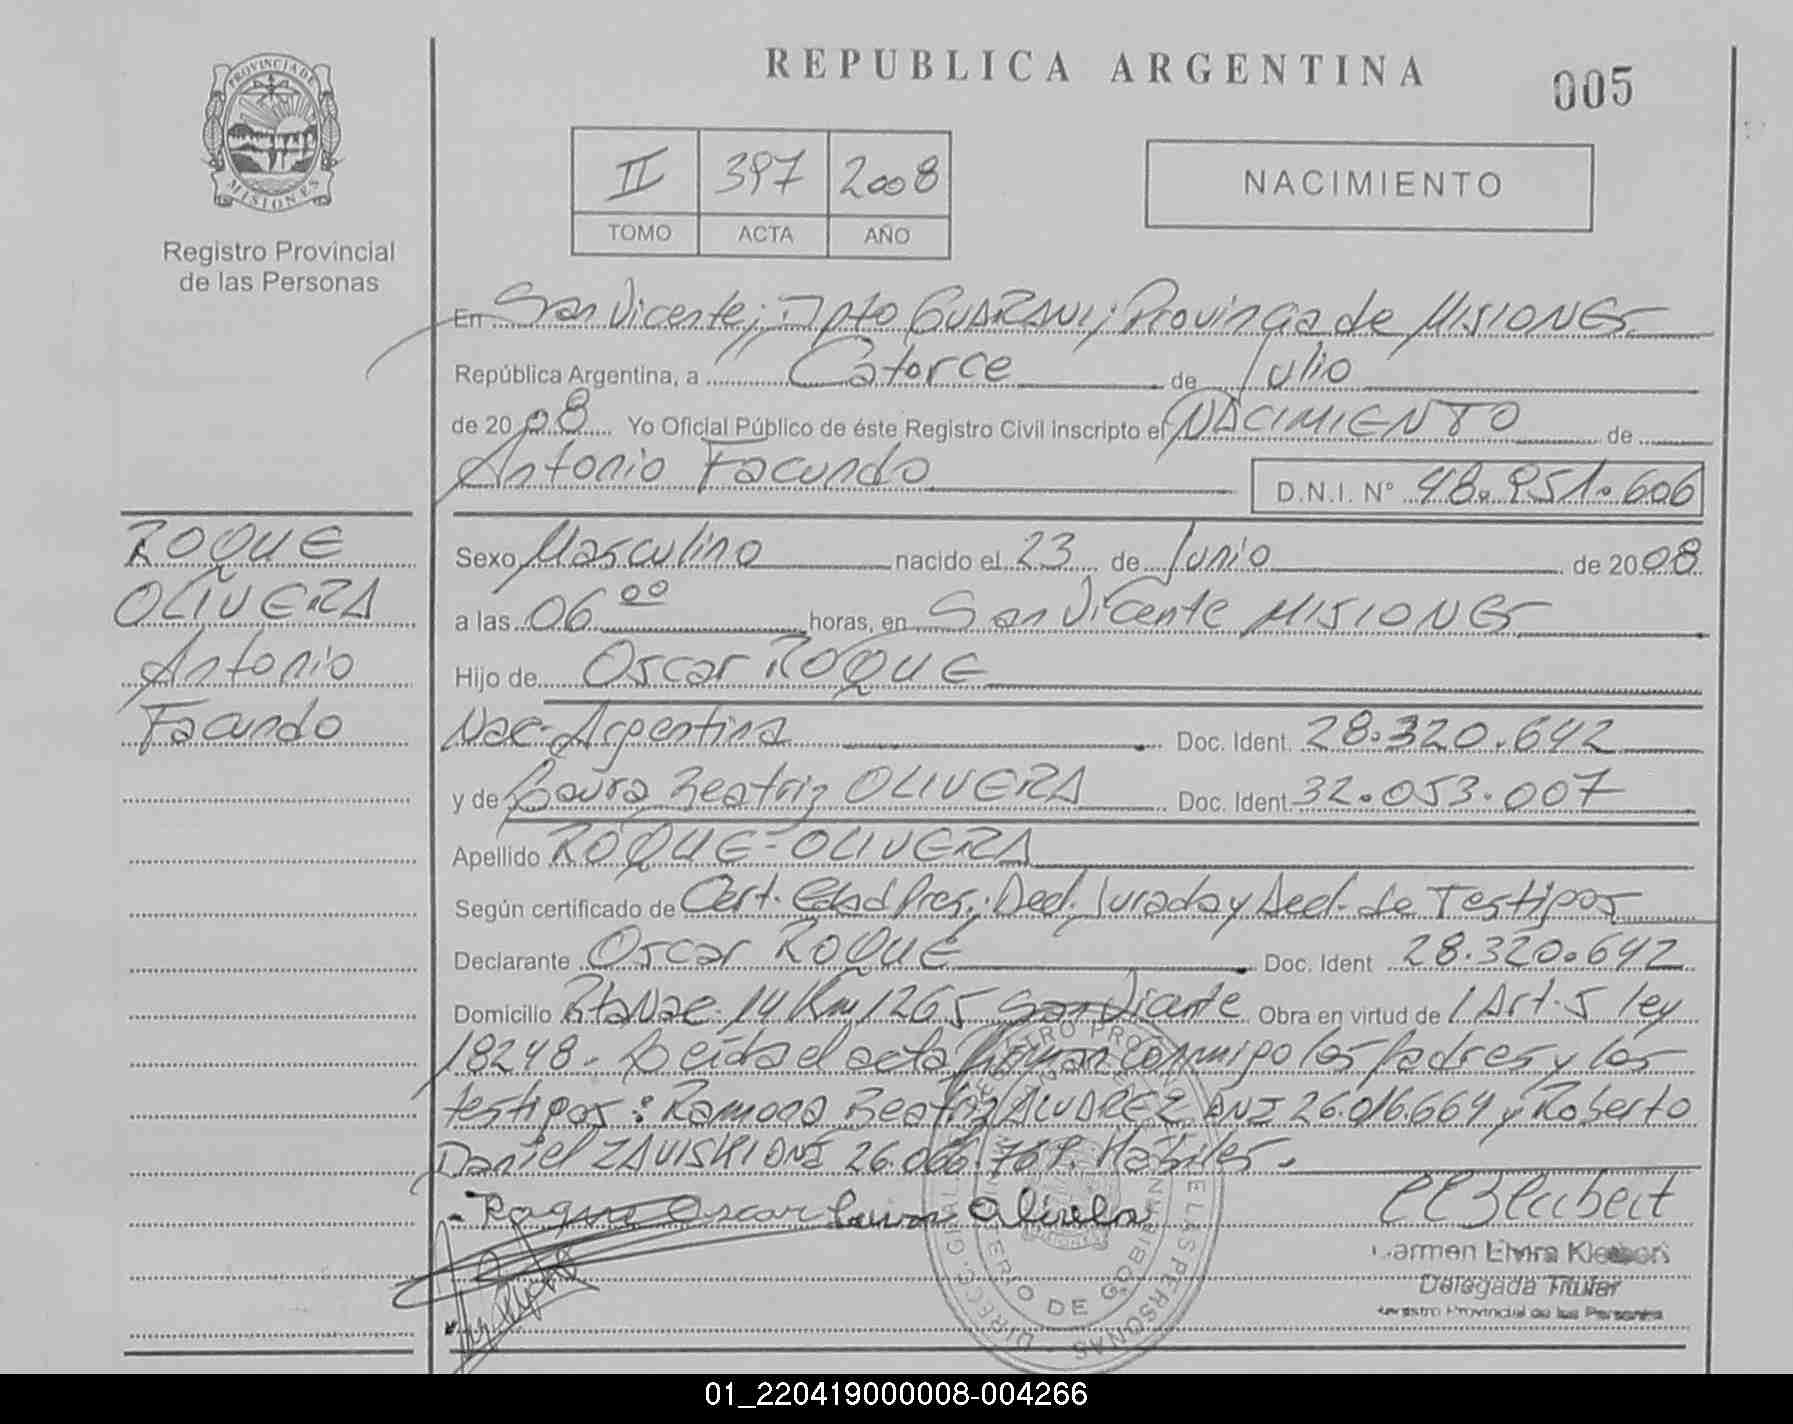 REPUBLICA ARGENTINA
005
PROVINCIA DE
MISIONES
Registro Provincial
de las Personas
II 397 2008
TOMO ACTA AÑO
NACIMIENTO
En San Vicente; Dpto GUARANI; Provincia de MISIONES
República Argentina, a Catorce de Julio
de 2008 Yo Oficial Público de éste Registro Civil inscripto el NACIMIENTO de
Antonio Facundo D.N.I. N° 48.951.606
ROQUE
OLIVERA
Antonio
Facundo
Sexo Masculino nacido el 23 de Junio de 2008
a las 06 00 horas, en San Vicente MISIONES
Hijo de Oscar ROQUE
Nac. Argentina Doc. Ident. 28.320.642
y de Laura Beatriz OLIVERA Doc. Ident. 32.053.007
Apellido ROQUE-OLIVERA
Según certificado de Cert. Edad Pres.; Decl. Jurada y Decl. de Testigos
Declarante Oscar ROQUE Doc. Ident 28.320.642
Domicilio Rta Nac. 14 Km 1265 San Vicente Obra en virtud de / Art. 5 ley
18248. Leída el acta firman conmigo los padres y los
testigos: Ramona Beatriz ALVAREZ DNI 26.016.664 y Roberto
Daniel ZAVISKI DNI Hábiles.
Roque Oscar Laura Olivera
Carmen Elvira
Delegada Titular
Registro Provincial de las Personas
01_220419000008-004266